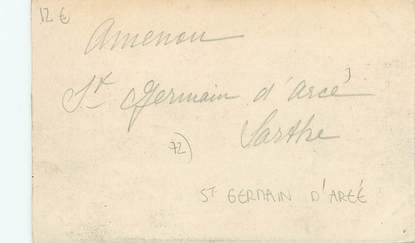 12 €
Amenou
St Germain d'Arcé
Sarthe
72)
ST GERMAIN D'ARCÉ